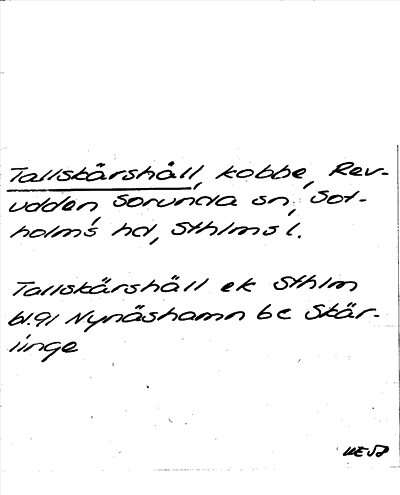 Tallskärshåll, kobbe, Rev-
udden, Sorunda sn, Sot-
holms hd, Sthlms l.
Tallskärshäll ek Sthlm
bl.91 Nynäshamn be Skär-
linge
WE 57